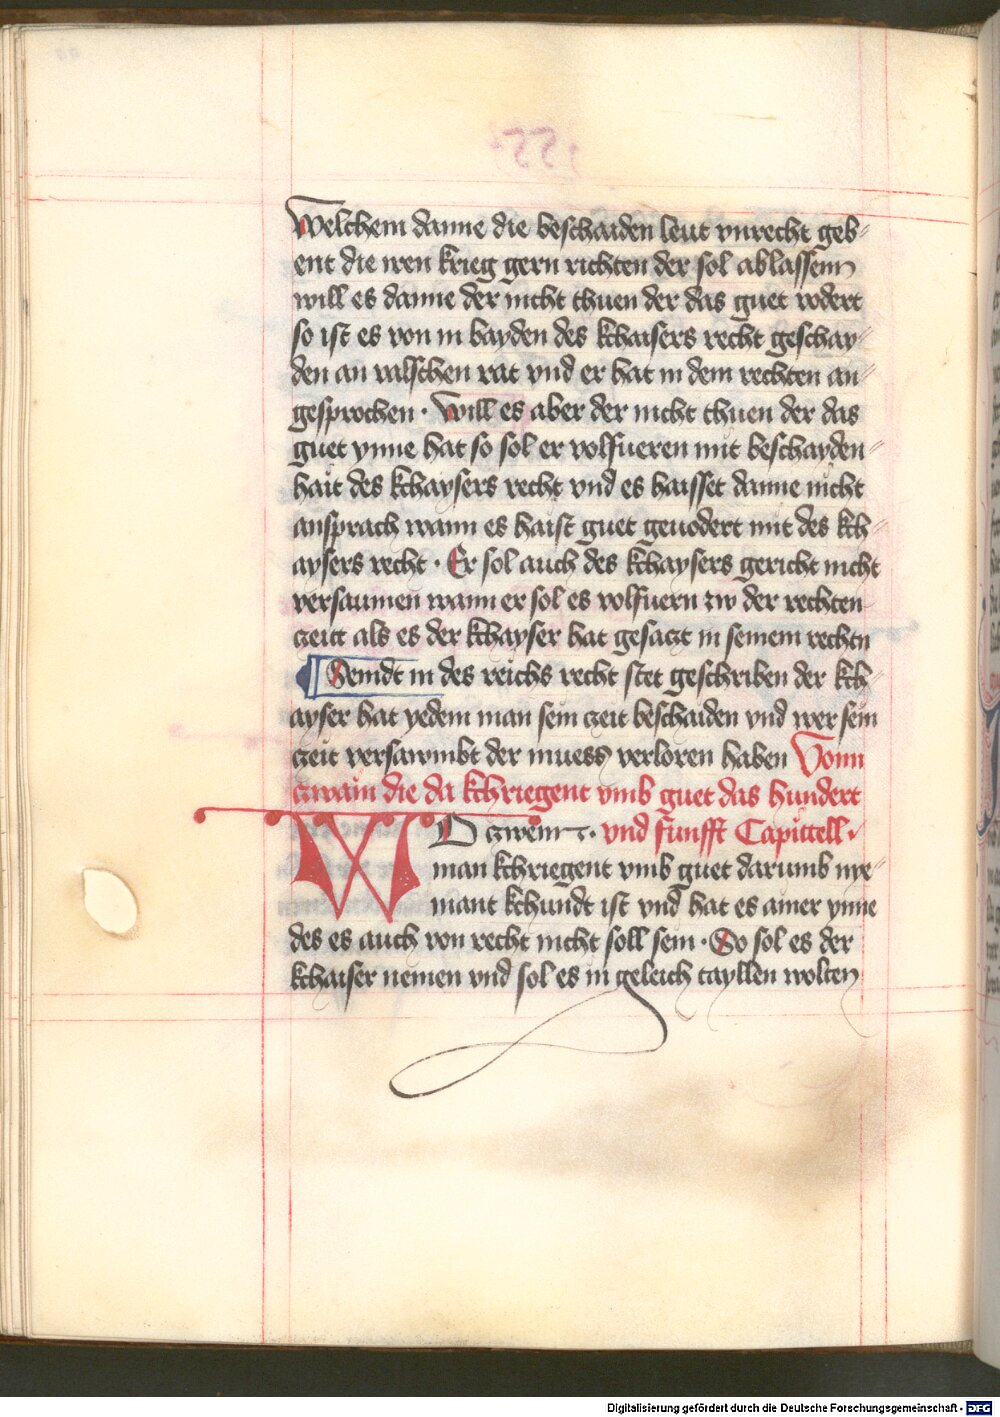 Welchem danne die beschaiden leut vnrecht geb⸗
ent die iren krieg gern richten der sol ablassenn
will es danne der nicht thuen der das guet vodert
so ist es von in bayden des kchaisers recht geschay⸗
den an valschen rat vnd er hat in dem rechten an⸗
gesprochen · Will es aber der nicht thuen der das
guet ynne hat so sol er volfueren mit beschayden⸗
hait des kchaysers recht vnd es haisset danne nicht
ansprach wann es haist guet geuodert mit des kch⸗
aysers recht · Er sol auch des kchaysers gericht nicht
versaumen wann er sol es volfuern zw der rechten
zeitt als es der kchayser hat gesaczt in seinem rechtn
Seindt in des reichs recht stet geschriben der kch⸗
ayser hat yedem man sein zeit beschaiden vnd wer sein
zeit versawmbt der muess verloren haben Vonn
zwain die da kchriegent vmb guet das hundert
WO zwenn · vnd funfft Capittell ·
man kchriegent vmb guet darumb nye⸗
mant kchundt ist vnd hat es ainer ynne
des es auch von recht nicht soll sein · So sol es der
kchaiser nemen vnd sol es in geleich tayllen wolten
Digitalisierung gefördert durch die Deutsche Forschungsgemeinschaft - DFG